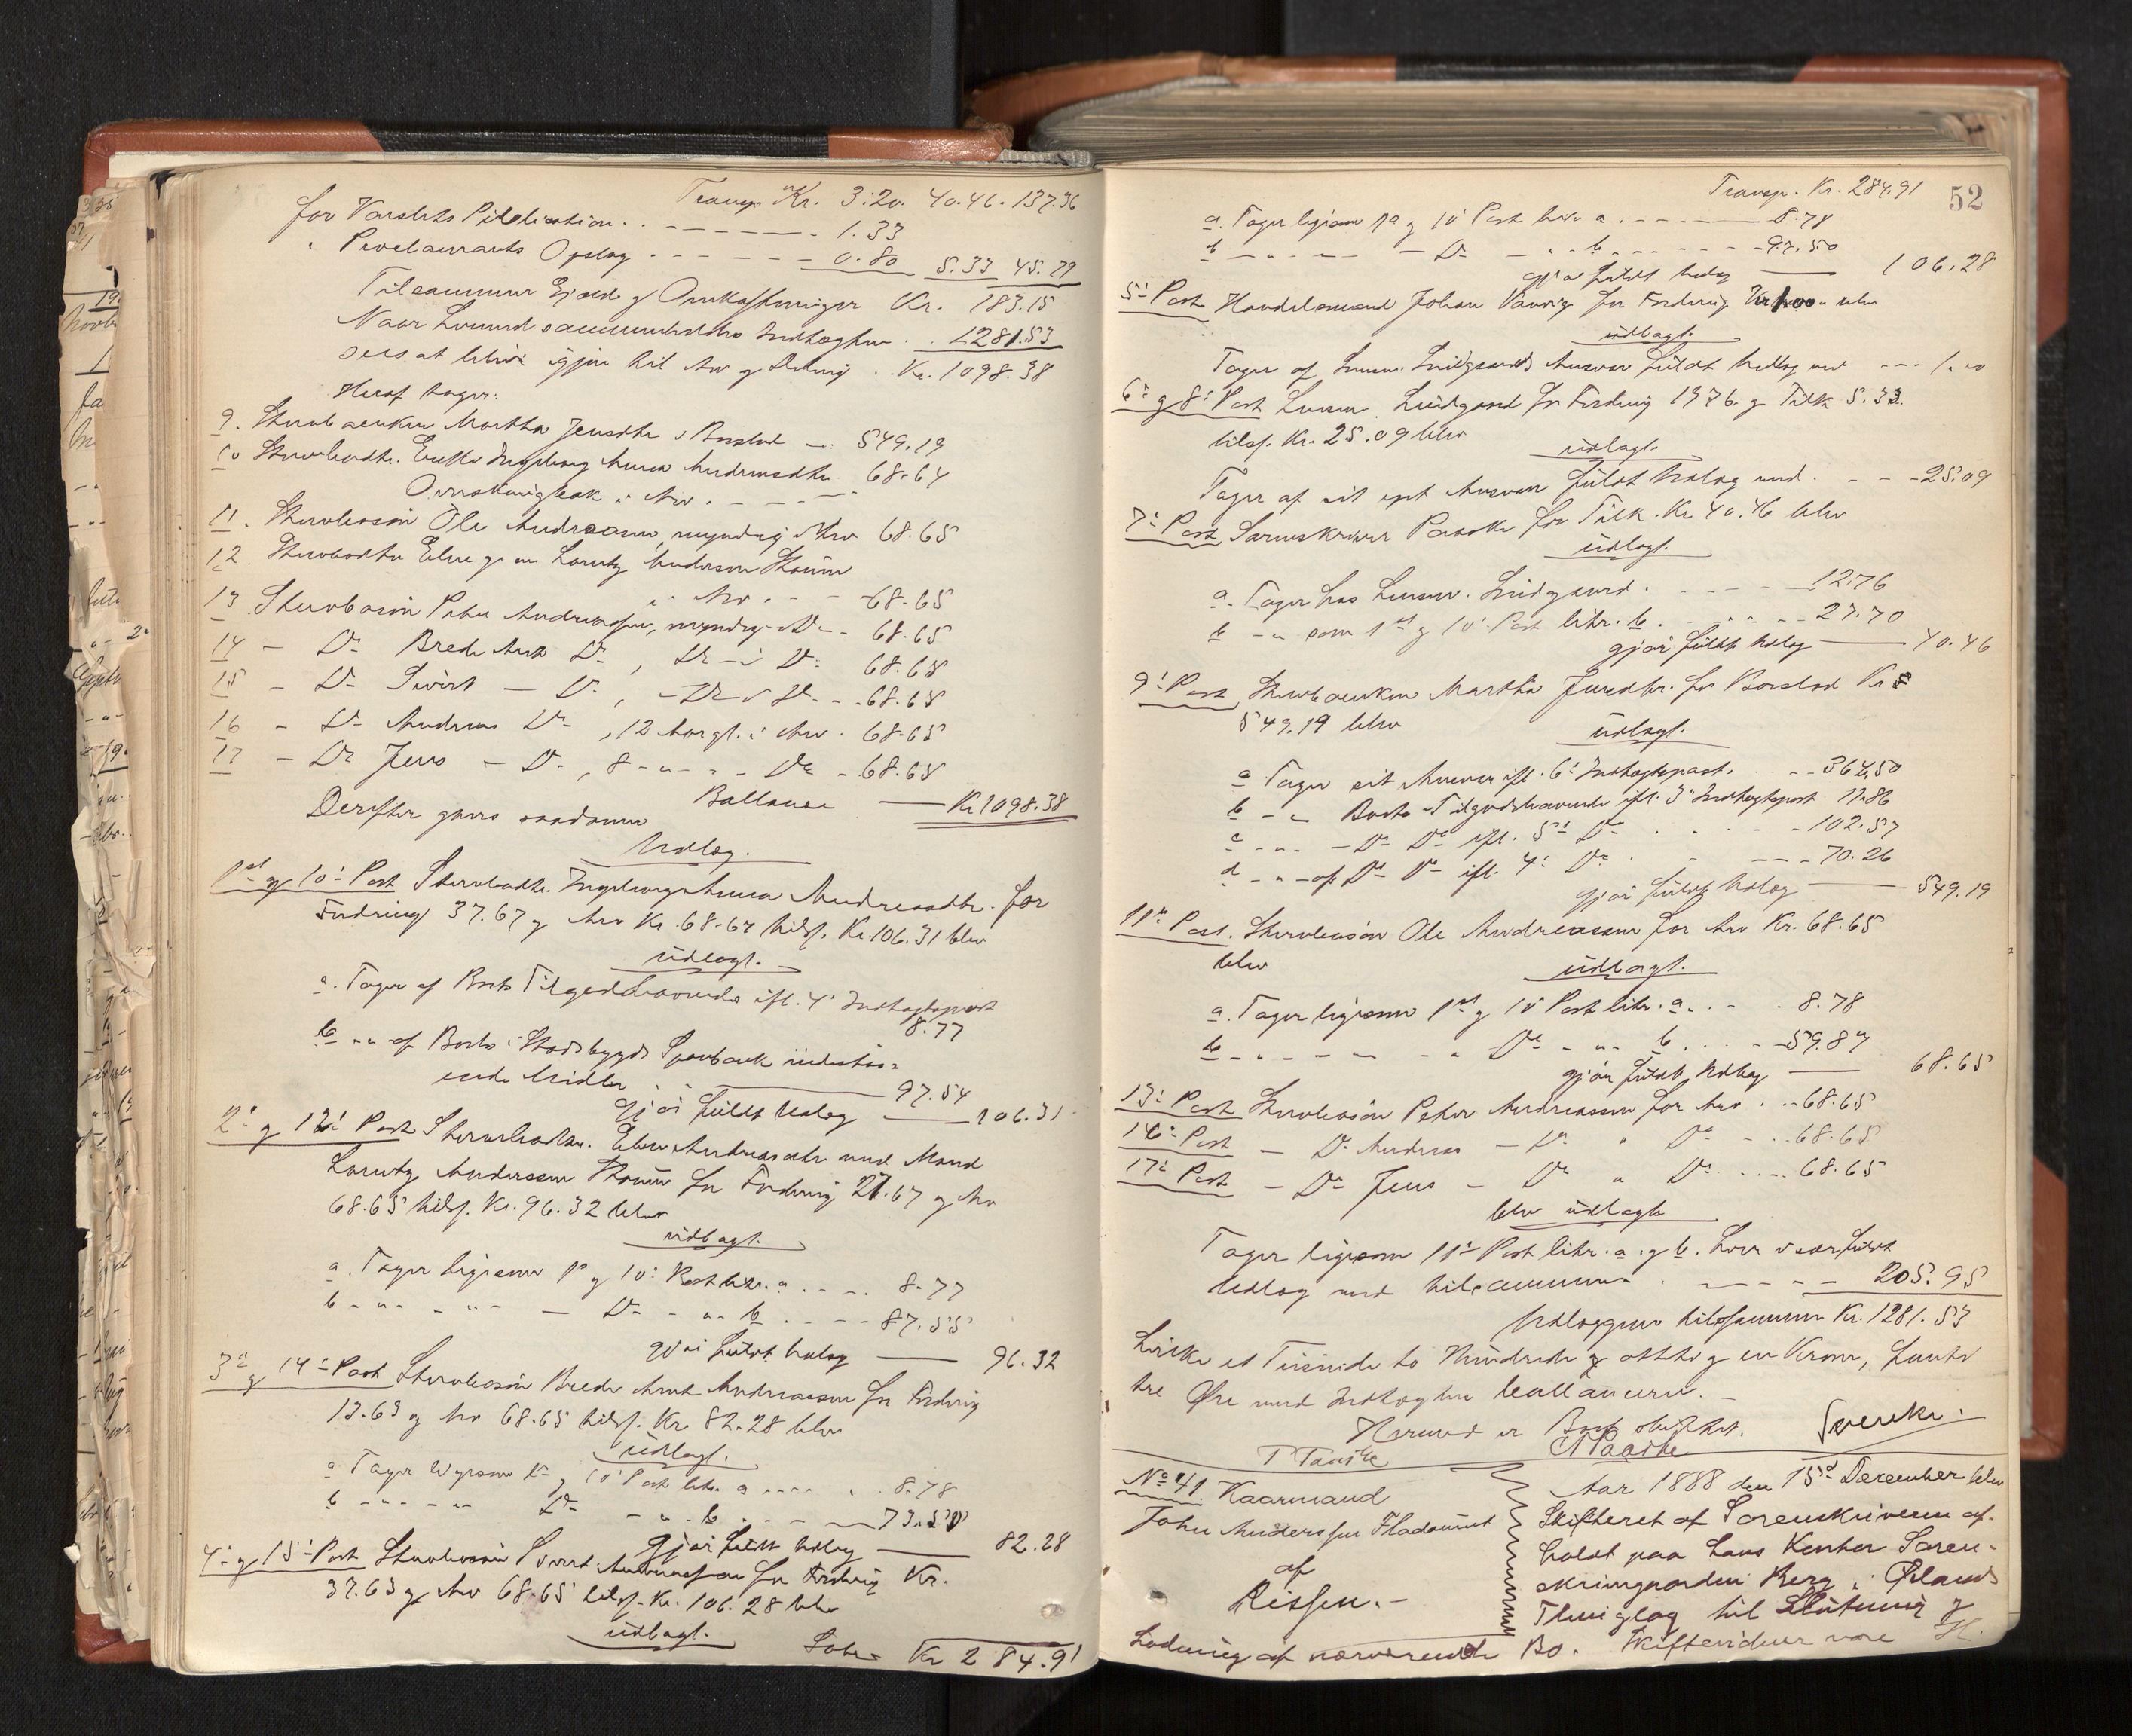 Transp. Kr. 3.20. 40.46. 137.36
for Varslets Publication . . — — — — 1.33
" Proclamaets Opslag . — — — — 0.80 5.33 45.79
Tilsammen Gjæld og Omkostninger Kr. 183.15
Naar herved sammenholdes Indtægten . . 1281.53
sees at blive igjen til Arv og Deling . . Kr. 1098.38
Heraf tager:
9. Sterboenken Martha Jensdtr. s Boeslod — 549.19
10 Sterbodtr. Enke Ingeborg Anna Andreasdtr. 68.64
i Arv . — — —
11. Sterbosøn Ole Andreassen, myndig Arv 68.65
12. Sterbodtr. Eline g. m. Lorentz Anderssen
i Arv . — — 68.65
13. Sterbosøn Peter Andreassen, myndig Arv — 68.65
14 — Do Brede Arnt Do , Do — i Do 68.65
15 — Do Sivert — Do , — Do i Do — 68.65
16 — Do Andreas Do , 12 Aar gl. i Arv . 68.65
17 — Do Jens — Do , 8 — " — " — Do — 68.65
Ballance — Kr 1098.38
Derefter gjøres saadanne
Udlæg.
1ste og 10de Post Sterbodtr. Ingeborg Anna Andreasdtr. for
Fordring 37.67 og Arv Kr. 68.64 tils. Kr. 106.31 blev
udlagt.
a. Tager af Boets Tilgodehavende ifl. 4de Indtægtspost
8.77
b " " af Boets i Stadsbygds Sparebank indestaa=
ende Midler . . — 97.54
gjør fuldt Udlæg — 106.31
2de og 12te Post Sterbodtr. Eline Andreasdtr. med Mand
Lorentz Anderssen for Fordring 27.67 og Arv
68.65 tils. Kr. 96.32 blev
udlagt.
a. Tager ligesom 1ste og 10de Post litr. a . . — . 8.77
b — " — " — Do — " b . . — — 87.55
gjør fuldt Udlæg — 96.32
3die og 14de Post Sterbosøn Brede Arnt Andreassen for Fordring
13.63 og Arv 68.65 tils. Kr 82.28 blev
udlagt.
a Tager ligesom 1ste og 10de Post litr. a . . . . 8.78
b — — " — Do — " b . — — 73.50
gjør fuldt Udlæg — 82.28
4de og 15de Post Sterbosøn Sivert Andreassen for Fordring Kr.
37.63 og Arv 68.65 tils. Kr. 106.28 blev
udlagt.
Lateris Kr 284.91
Transp. Kr. 284.91 52
a. Tager ligesom 1ste og 10de Post litr. a . — — — 8.78
b — " — — Do — " b . — — — 97.50
gjør fuldt Udlæg — 106.28
5te Post Handelsmand Johan for Fordring Kr 1.00 blev
udlagt.
Tager af Lensm. Lindgaards Ansvar fuldt Udlæg med — — — 1.00
6te og 8de Post Lensm. Lindgaard for Fordring 1976. og Tilk 5.33.
tils. Kr. 25.09 blev
udlagt.
Tager af sit eget Ansvar fuldt Udlæg med . — — 25.09
7de Post Sorenskriver Paaske for Tilk. Kr 40.46 blev
udlagt.
a. Tager hos Lensm. Lindgaard . — — — 12.76
b — " som 1ste og 10de Post litr. b . — — — 27.70
gjør fuldt Udlæg — 40.46
9de Post, Sterboenken Martha Jensdtr. for Boeslod Kr
549.19 blev
udlagt.
a Tager sit Ansvar ifl. 6te Indtægtspost . . . 364.50
b — " Boets Tilgodehavende ifl. 3de Indtægtspost 11.86
c — " — Do Do ifl. 5te Do . . . — 102.57
d — " — af Do Do ifl. 4de Do . . — — — 70.26
gjør fuldt Udlæg — 549.19
11te Post. Sterbosøn Ole Andreassen for Arv Kr. 68.65
blev
udlagt.
a. Tager ligesom 1ste og 10de Post litr. a . . — . 8.78
b — " — — — " Do — " b . . . — 59.87
gjør fuldt Udlæg — 68.65
13de Post Sterbosøn Peter Andreassen for Arv . . . 68.65
16de Post — Do Andreas — Do " Do — . . 68.65
17de Post — Do Jens — Do " Do . . . — 68.65
blev udlagt
Tager ligesom 11te Post litr. a og b. hver især fuldt
Udlæg med tilsammen . — — — — 205.95
Udlæggene tilsammen Kr. 1281.53
hvilke et Tusinde to Hundrede og otti og en Krone, femti
tre Øre med Indtægten ballancerer. —
Hermed er Boet sluttet.
T Paaske N Paaske
No 41. Kaarmand
John Anderssen Fladaunet
af
Rissen. —
Aar 1888 den 15de December blev
Skifteret af Sorenskriveren af-
holdt paa hans Kontor Soren-
skrivergaarden Berg i Ørlands
Thinglag til Slutning og
Lodning af nærværende Bo. Skiftevidner vare H.